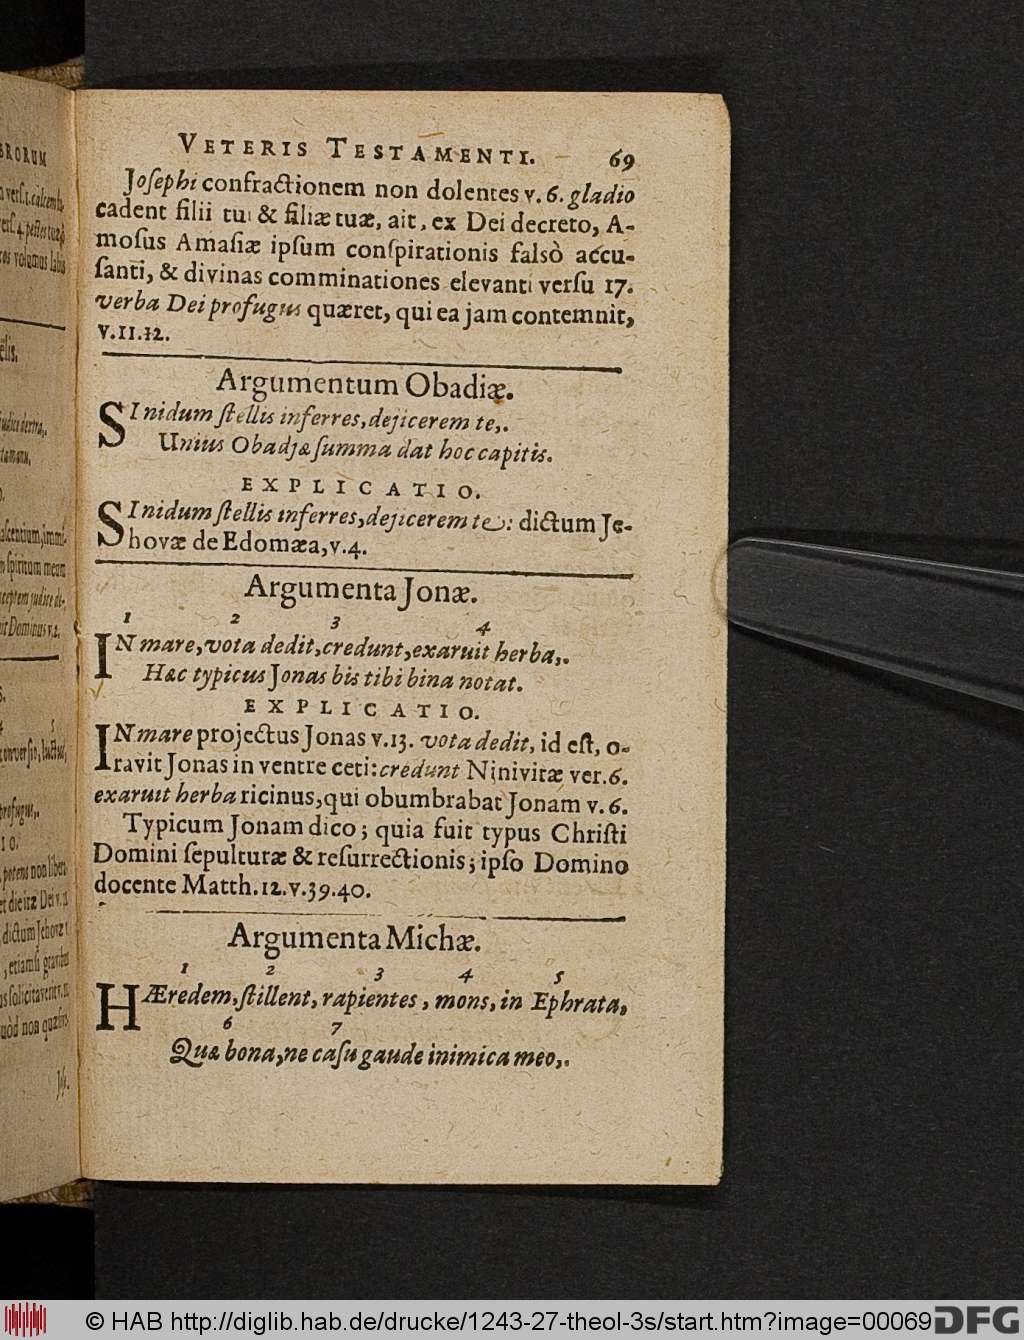 VETERIS TESTAMENTI. 69
Josephi confractionem non dolentes v. 6. gladio
cadent filii tui & filiæ tuæ, ait, ex Dei decreto, A-
mosus Amasiæ ipsum conspirationis falsò accu-
santi, & divinas comminationes elevanti versu 17.
verba Dei profugus quæret, qui ea jam contemnit,
v. 11. 12.
Argumentum Obadiæ.
SI nidum stellis inferres, dejicerem te,.
Unius Obadjæ summa dat hoc capitis.
EXPLICATIO.
SI nidum stellis inferres, dejicerem te: dictum Je-
hovæ de Edomæa, v. 4.
Argumenta Jonæ.
1 2 3 4
IN mare, vota dedit, credunt, exaruit herba,.
Hæc typicus Jonas bis tibi bina notat.
EXPLICATIO.
IN mare projectus Jonas v. 13. vota dedit, id est, o-
ravit Jonas in ventre ceti: credunt Ninivitæ ver. 6.
exaruit herba ricinus, qui obumbrabat Jonam v. 6.
Typicum Jonam dico; quia fuit typus Christi
Domini sepulturæ & resurrectionis; ipso Domino
docente Matth. 12. v. 39. 40.
Argumenta Michæ.
1 2 3 4 5
HÆredem, stillent, rapientes, mons, in Ephrata,
6 7
Quæ bona, ne casu gaude inimica meo,.
© HAB http://diglib.hab.de/drucke/1243-27-theol-3s/start.htm?image=00069
DFG